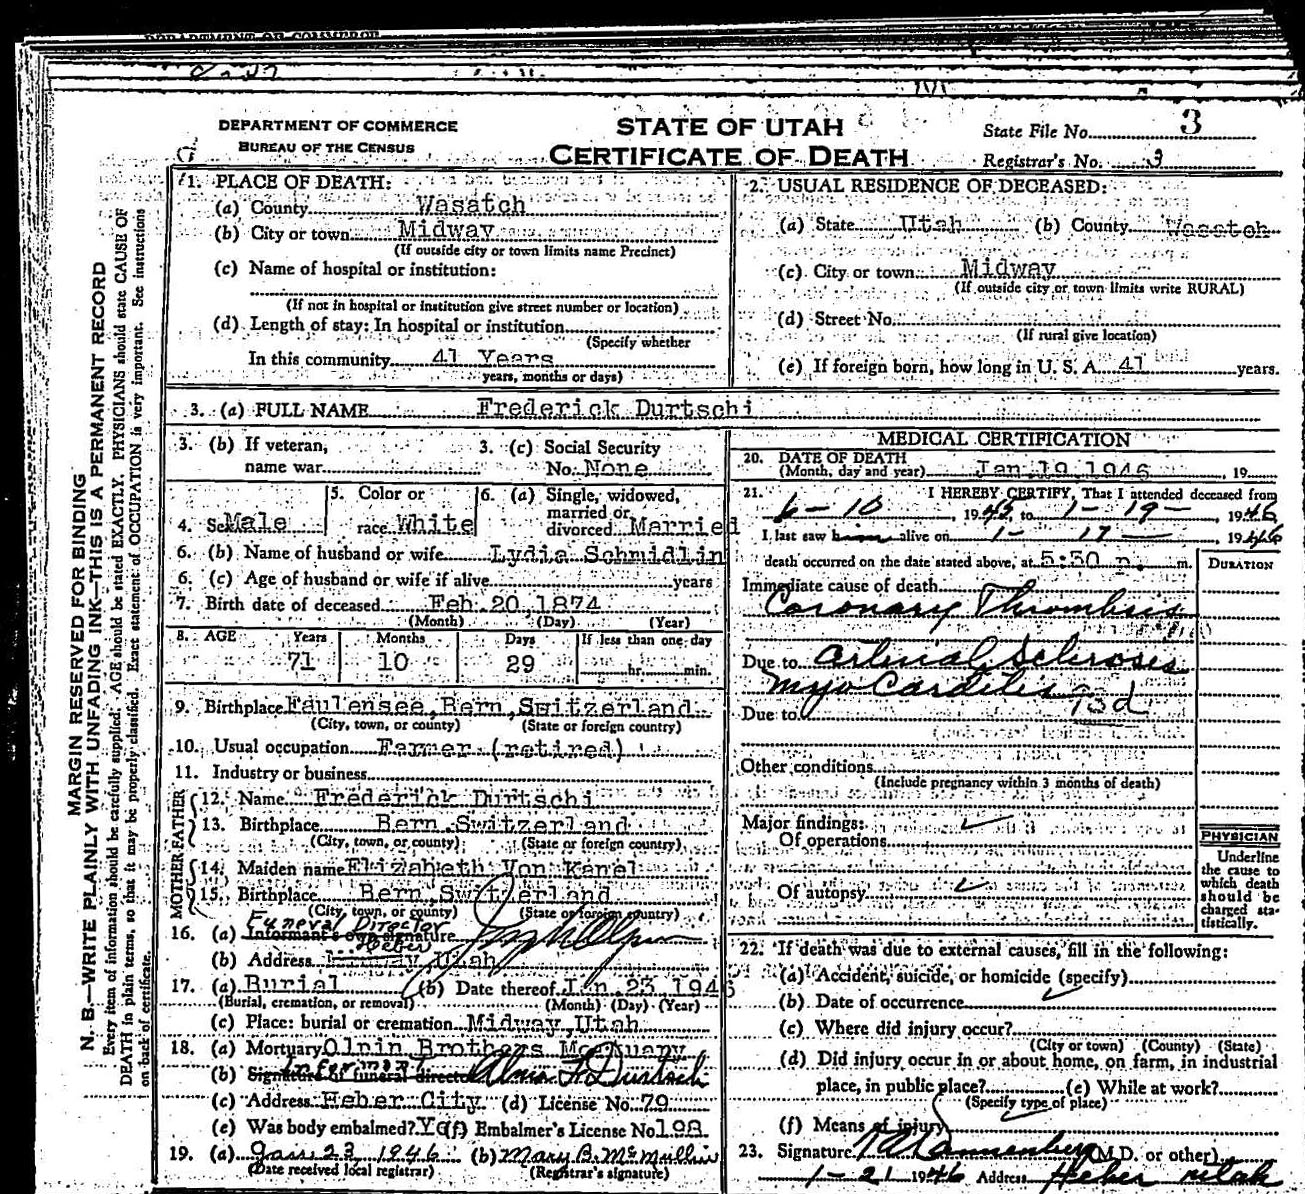 DEPARTMENT OF COMMERCE
DEPARTMENT OF COMMERCE
BUREAU OF THE CENSUS
STATE OF UTAH
CERTIFICATE OF DEATH
State File No. 3
Registrar's No. 3
MARGIN RESERVED FOR BINDING
N. B.—WRITE PLAINLY WITH UNFADING INK—THIS IS A PERMANENT RECORD
Every item of information should be carefully supplied. AGE should be stated EXACTLY. PHYSICIANS should state CAUSE OF
DEATH in plain terms, so that it may be properly classified. Exact statement of OCCUPATION is very important. See instructions
on back of certificate.
1. PLACE OF DEATH:
(a) County Wasatch
(b) City or town Midway
(If outside city or town limits name Precinct)
(c) Name of hospital or institution:
(If not in hospital or institution give street number or location)
(d) Length of stay: In hospital or institution
(Specify whether
In this community 41 Years
years, months or days)
2. USUAL RESIDENCE OF DECEASED:
(a) State Utah (b) County Wasatch
(c) City or town Midway
(If outside city or town limits write RURAL)
(d) Street No.
(If rural give location)
(e) If foreign born, how long in U. S. A. 41 years.
3. (a) FULL NAME Frederick Durtschi
3. (b) If veteran, name war
3. (c) Social Security No. None
4. Sex Male
5. Color or race White
6. (a) Single, widowed, married or divorced Married
6. (b) Name of husband or wife Lydia Schmidlin
6. (c) Age of husband or wife if alive years
7. Birth date of deceased Feb 20, 1874
(Month) (Day) (Year)
8. AGE Years Months Days If less than one day
71 10 29 hr. min.
9. Birthplace Faulensee, Bern, Switzerland
(City, town, or county) (State or foreign country)
10. Usual occupation Farmer (retired)
11. Industry or business
FATHER
12. Name Frederick Durtschi
13. Birthplace Bern, Switzerland
(City, town, or county) (State or foreign country)
MOTHER
14. Maiden name Elizabeth Von Kanel
15. Birthplace Bern, Switzerland
(City, town, or county) (State or foreign country)
Funeral Director
16. (a) Informant's own signature
(b) Address Midway, Utah
17. (a) Burial (b) Date thereof Jan. 23, 1946
(Burial, cremation, or removal) (Month) (Day) (Year)
(c) Place: burial or cremation Midway, Utah
18. (a) Mortuary Olpin Brothers Mortuary
Informant
(b) Signature of funeral director Durtschi
(c) Address Heber City (d) License No. 79
(e) Was body embalmed? Yes (f) Embalmer's License No. 198
19. (a) Jan. 23 1946 (b) Mary B. McMullin
(Date received local registrar) (Registrar's signature)
MEDICAL CERTIFICATION
20. DATE OF DEATH
(Month, day and year) Jan 19, 1946, 19
21. I HEREBY CERTIFY, That I attended deceased from
6-10, 1945 to 1-19-, 1946
I last saw him alive on 1- 17-, 1946
death occurred on the date stated above, at 5:30 p. m.
DURATION
Immediate cause of death
Coronary Thrombosis
Due to Arterial Sclerosis
Myo Carditis 93d
Due to
Other conditions
(Include pregnancy within 3 months of death)
Major findings:
Of operations
Of autopsy
PHYSICIAN
Underline
the cause to
which death
should be
charged sta-
tistically.
22. If death was due to external causes, fill in the following:
(a) Accident, suicide, or homicide (specify)
(b) Date of occurrence
(c) Where did injury occur?
(City or town) (County) (State)
(d) Did injury occur in or about home, on farm, in industrial
place, in public place? (e) While at work?
(Specify type of place)
(f) Means of injury
23. Signature (M.D. or other)
1-21 1946 Address Heber Utah